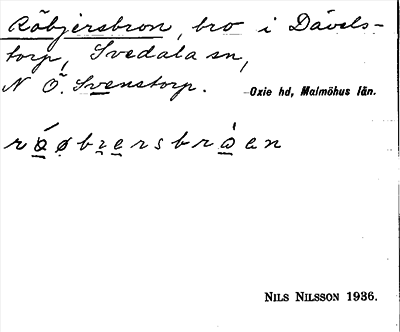 Röbjersbron, bro i Dävels-
torp, Svedala sn,
N Ö. Svenstorp.
Oxie hd, Malmöhus län.
NILS NILSSON 1936.